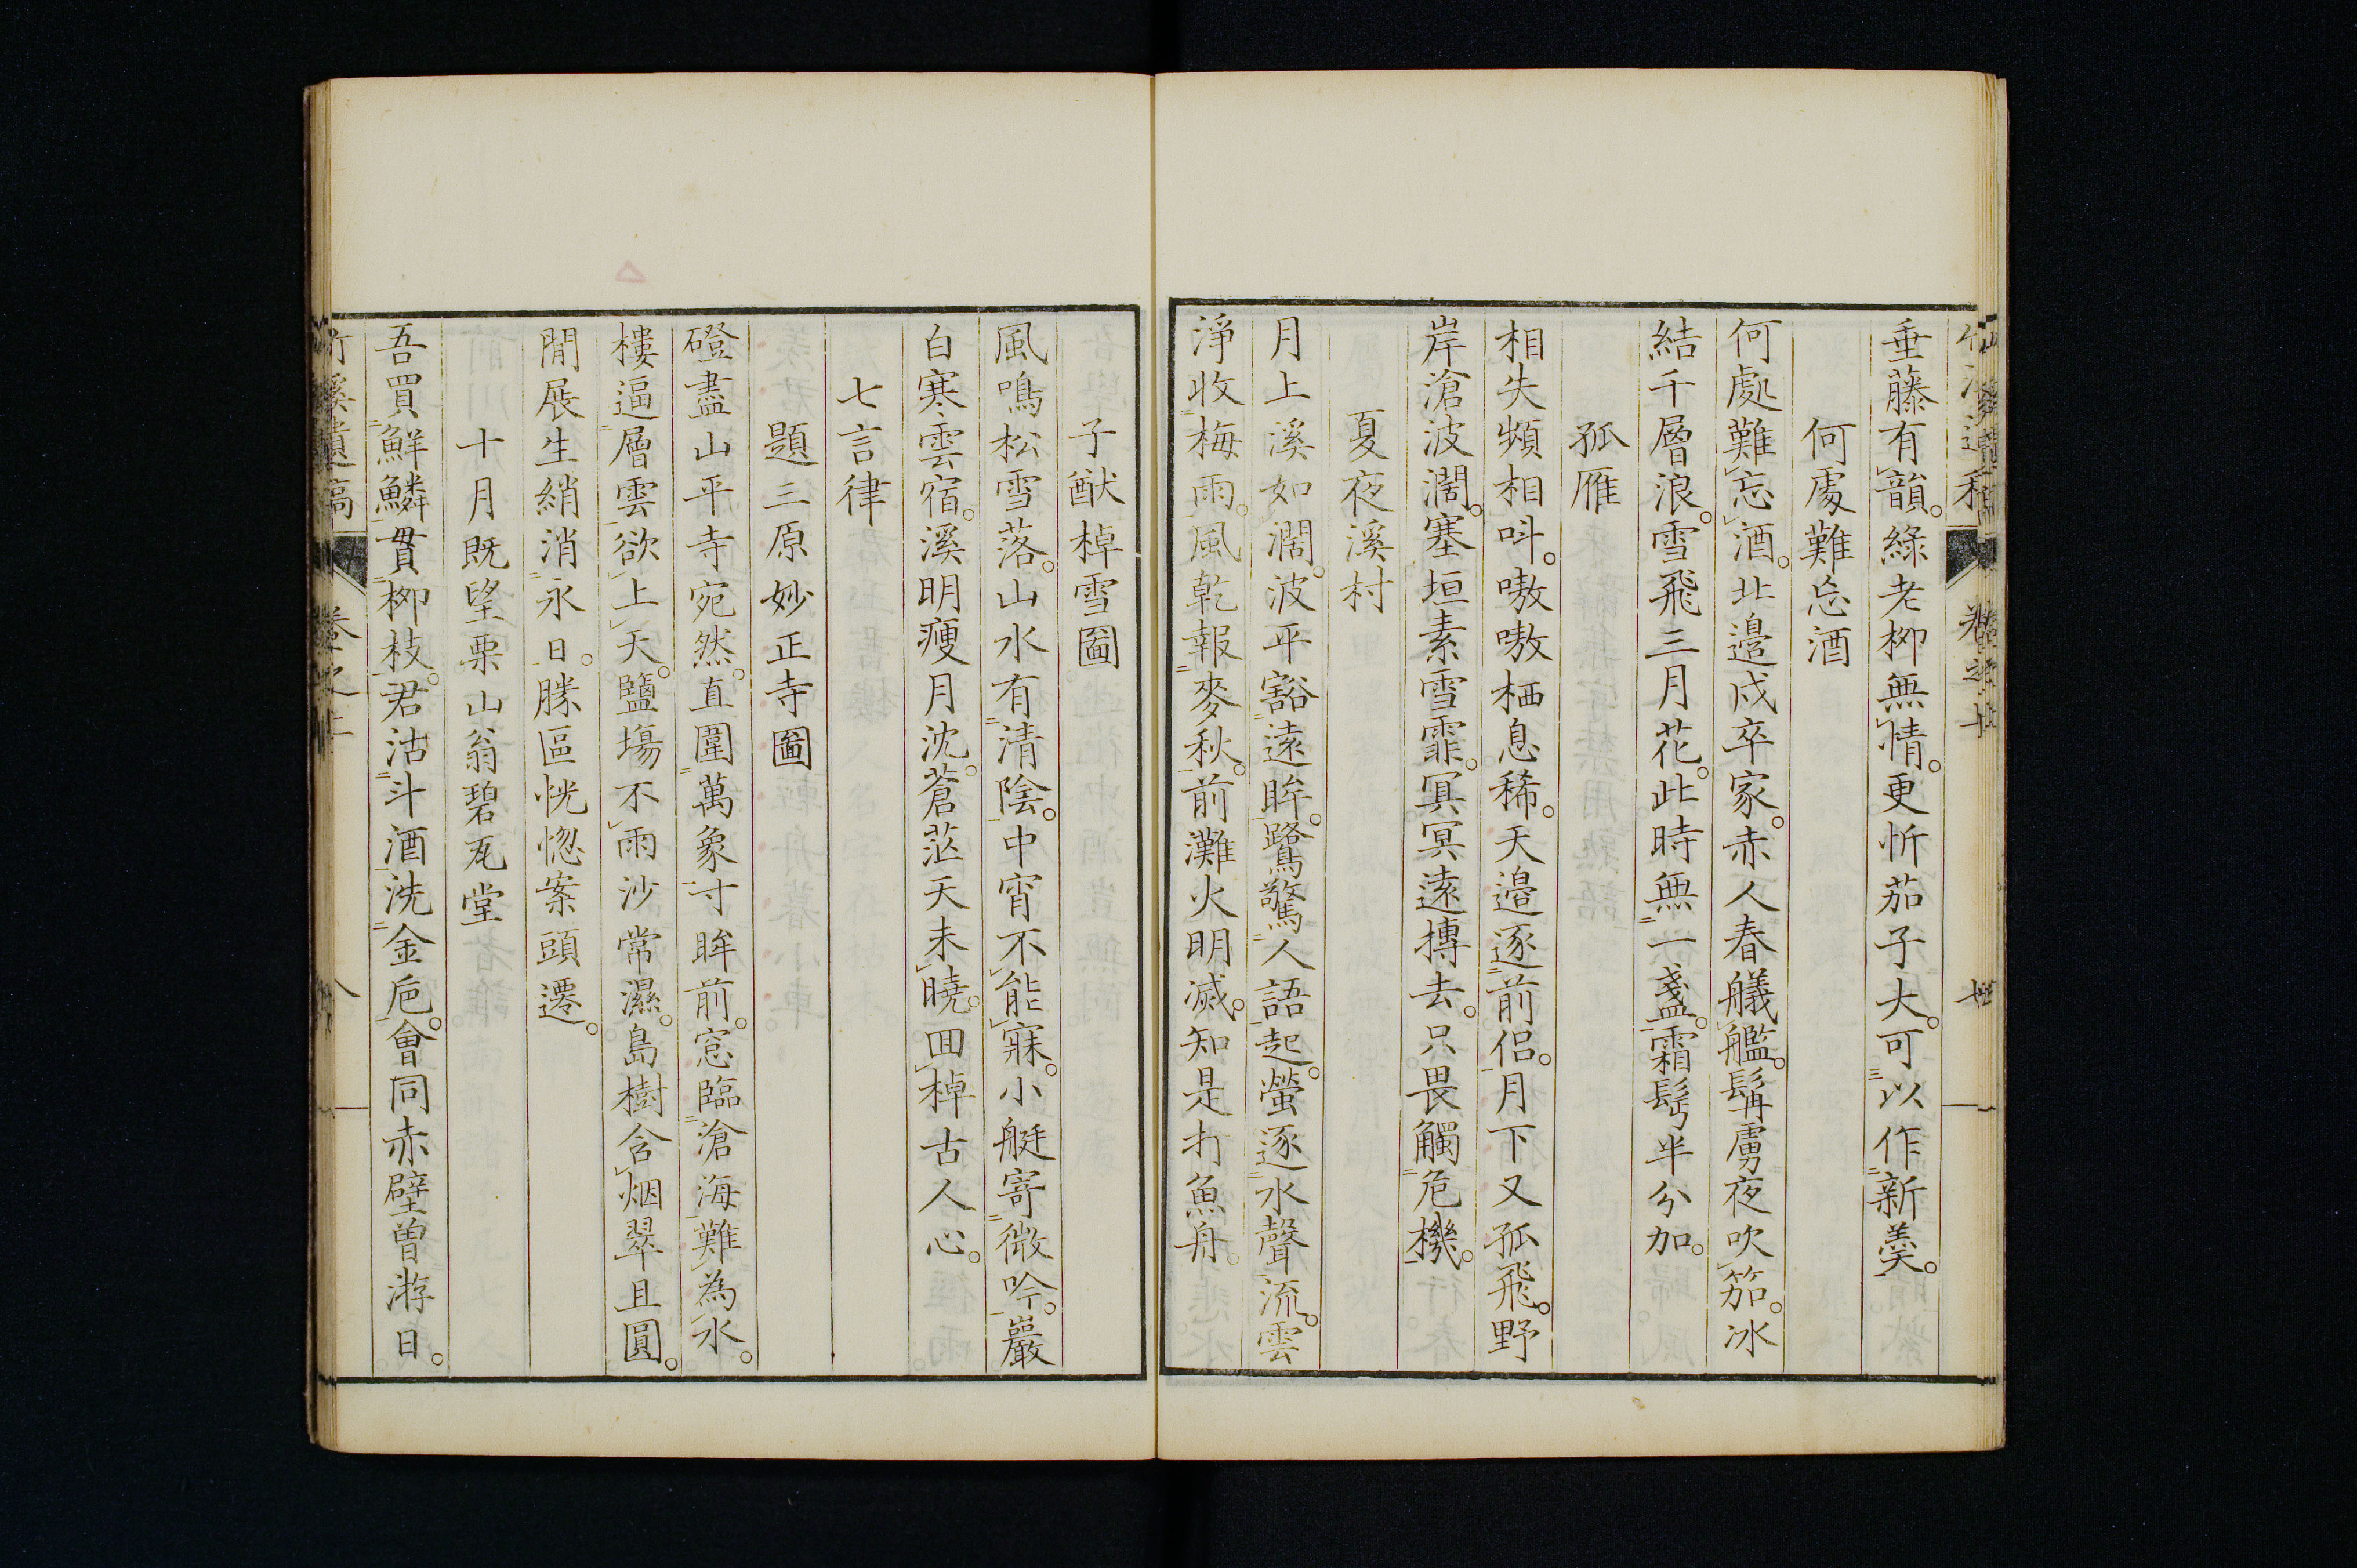 垂藤有韻。綠老柳無情。更忻茄子大。可以作新羹。
何處難忘酒
何處難忘酒。北邉戍卒家。赤人春艤艦。髯虜夜吹笳。冰
結千層浪。雪飛三月花。此時無一盞。霜髩半分加。
孤雁
相失頻相呌。嗷嗷栖息稀。天邉逐前侶。月下又孤飛。野
岸滄波濶。塞垣素雪霏。冥冥遠摶去。只畏觸危機。
夏夜溪村
月上溪如濶。波平豁遠眸。鷺驚人語起。螢逐水聲流。雲
淨收梅雨。風乾報麥秋。前灘火明滅。知是打魚舟。
子猷棹雪圖
風鳴松雪落。山水有清陰。中宵不能寐。小艇寄微吟。巖
白寒雲宿。溪明瘦月沈。蒼茫天未曉。回棹古人心。
七言律
題三原妙正寺圖
磴盡山平寺宛然。直圍萬象寸眸前。窓臨滄海難為水。
樓逼層雲欲上天。鹽場不雨沙常濕。島樹含烟翠且圓。
閒展生綃消永日。勝區恍惚案頭遷。
十月既望栗山翁碧瓦堂
吾買鮮鱗貫柳枝。君沽斗酒洗金巵。會同赤壁曽游日。
竹溪遺稿 卷之上 八